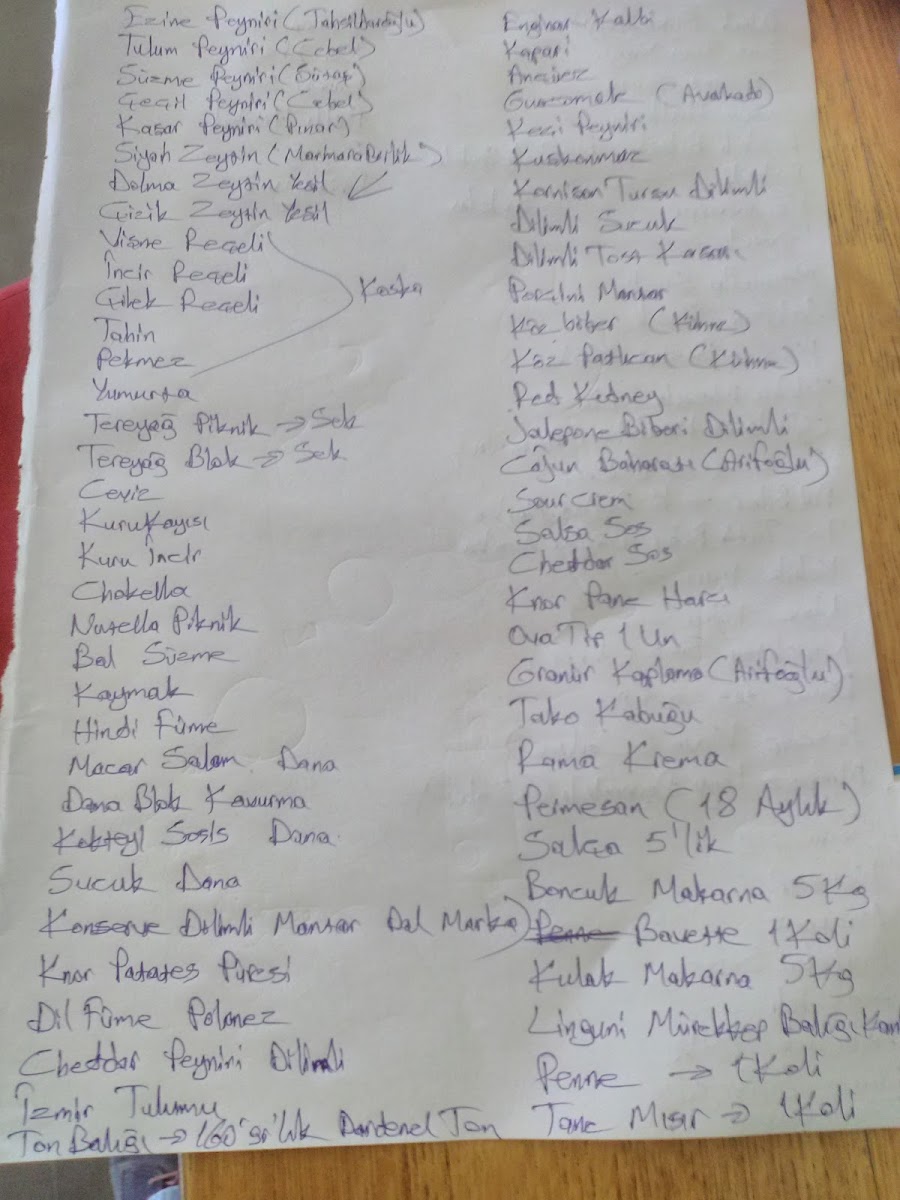 Ezine Peyniri (Tahsildaroğlu)
Tulum Peyniri (Cebel)
Süzme Peyniri (Sütaş)
Çeçil Peyniri (Cebel)
Kaşar Peyniri (Pınar)
Siyah Zeytin (Marmara Birlik)
Dolma Zeytin Yeşil
Çizik Zeytin Yeşil
Vişne Reçeli
İncir Reçeli
Çilek Reçeli
Koska
Tahin
Pekmez
Yumurta
Tereyağ Piknik → Sek
Tereyağ Blok → Sek
Ceviz
Kuru Kayısı
Kuru İncir
Chokella
Nutella Piknik
Bal Süzme
Kaymak
Hindi Füme
Macar Salam Dana
Dana Blok Kavurma
Kokteyl Sosis Dana
Sucuk Dana
Konserve Dilimli Mantar Dal Marka)
Knor Patates Püresi
Dil Füme Polonez
Cheddar Peyniri Dilimli
İzmir Tulumu
Ton Balığı → 160 gr'lık Dardenel Ton
Enginar Kalbi
Kapari
Ançüez
(Avakado)
Keçi Peyniri
Kuşkonmaz
Kornison Turşu Dilimli
Dilimli Sucuk
Dilimli Tost Kaşarı
Porçini Mantar
Köz biber (Kühne)
Köz Patlıcan (Kühne)
Red Kidney
Jalepone Biberi Dilimli
Cajun Baharatı (Arifoğlu)
Sour Crem
Salsa Sos
Cheddar Sos
Knor Pane Harcı
Ova Tip 1 Un
Granür Kaplama (Arifoğlu)
Tako Kabuğu
Rama Krema
Permesan (18 Aylık)
Salça 5'lik
Boncuk Makarna 5 Kg
Penne Bavette 1 Koli
Kulak Makarna 5 Kg
Linguni Mürekkep Balığı
Penne → 1 Koli
Tane Mısır → 1 Koli